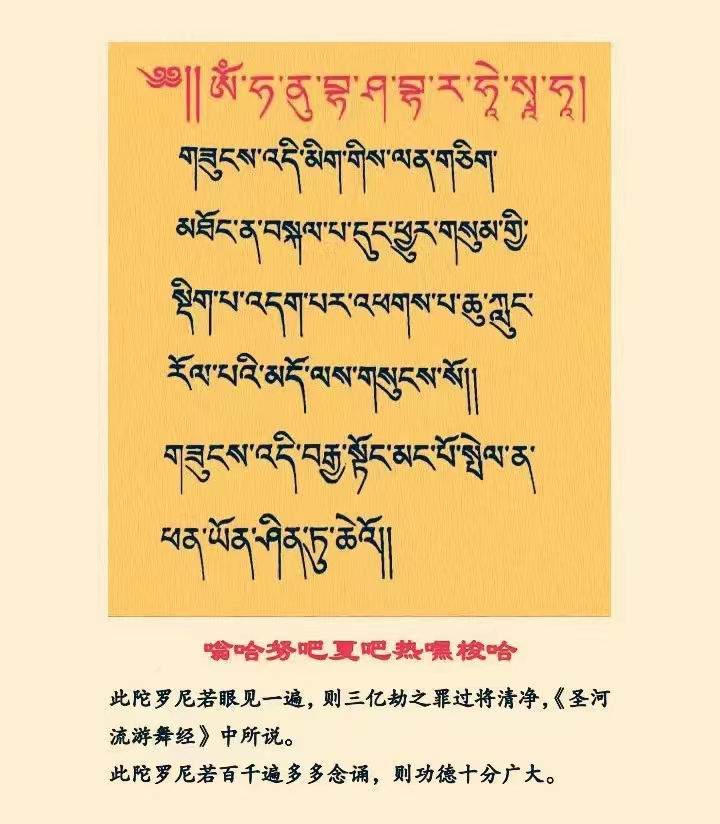 ༄༅།། ཨོཾ་ཧ་ནུ་བྷ་ཤ་བྷ་ར་ཧེ་སྭཱ་ཧཱ།
གཟུངས་འདི་མིག་གིས་ལན་གཅིག་
མཐོང་ན་བསྐལ་པ་དུང་ཕྱུར་གསུམ་གྱི་
སྡིག་པ་འདག་པར་འཕགས་པ་ཆུ་ཀླུང་
རོལ་པའི་མདོ་ལས་གསུངས་སོ།།
གཟུངས་འདི་བརྒྱ་སྟོང་མང་པོ་སྤེལ་ན་
ཕན་ཡོན་ཤིན་ཏུ་ཆེའོ།།
嗡哈努吧夏吧热嘿梭哈
此陀罗尼若眼见一遍，则三亿劫之罪过将清净，《圣河
流游舞经》中所说。
此陀罗尼若百千遍多多念诵，则功德十分广大。